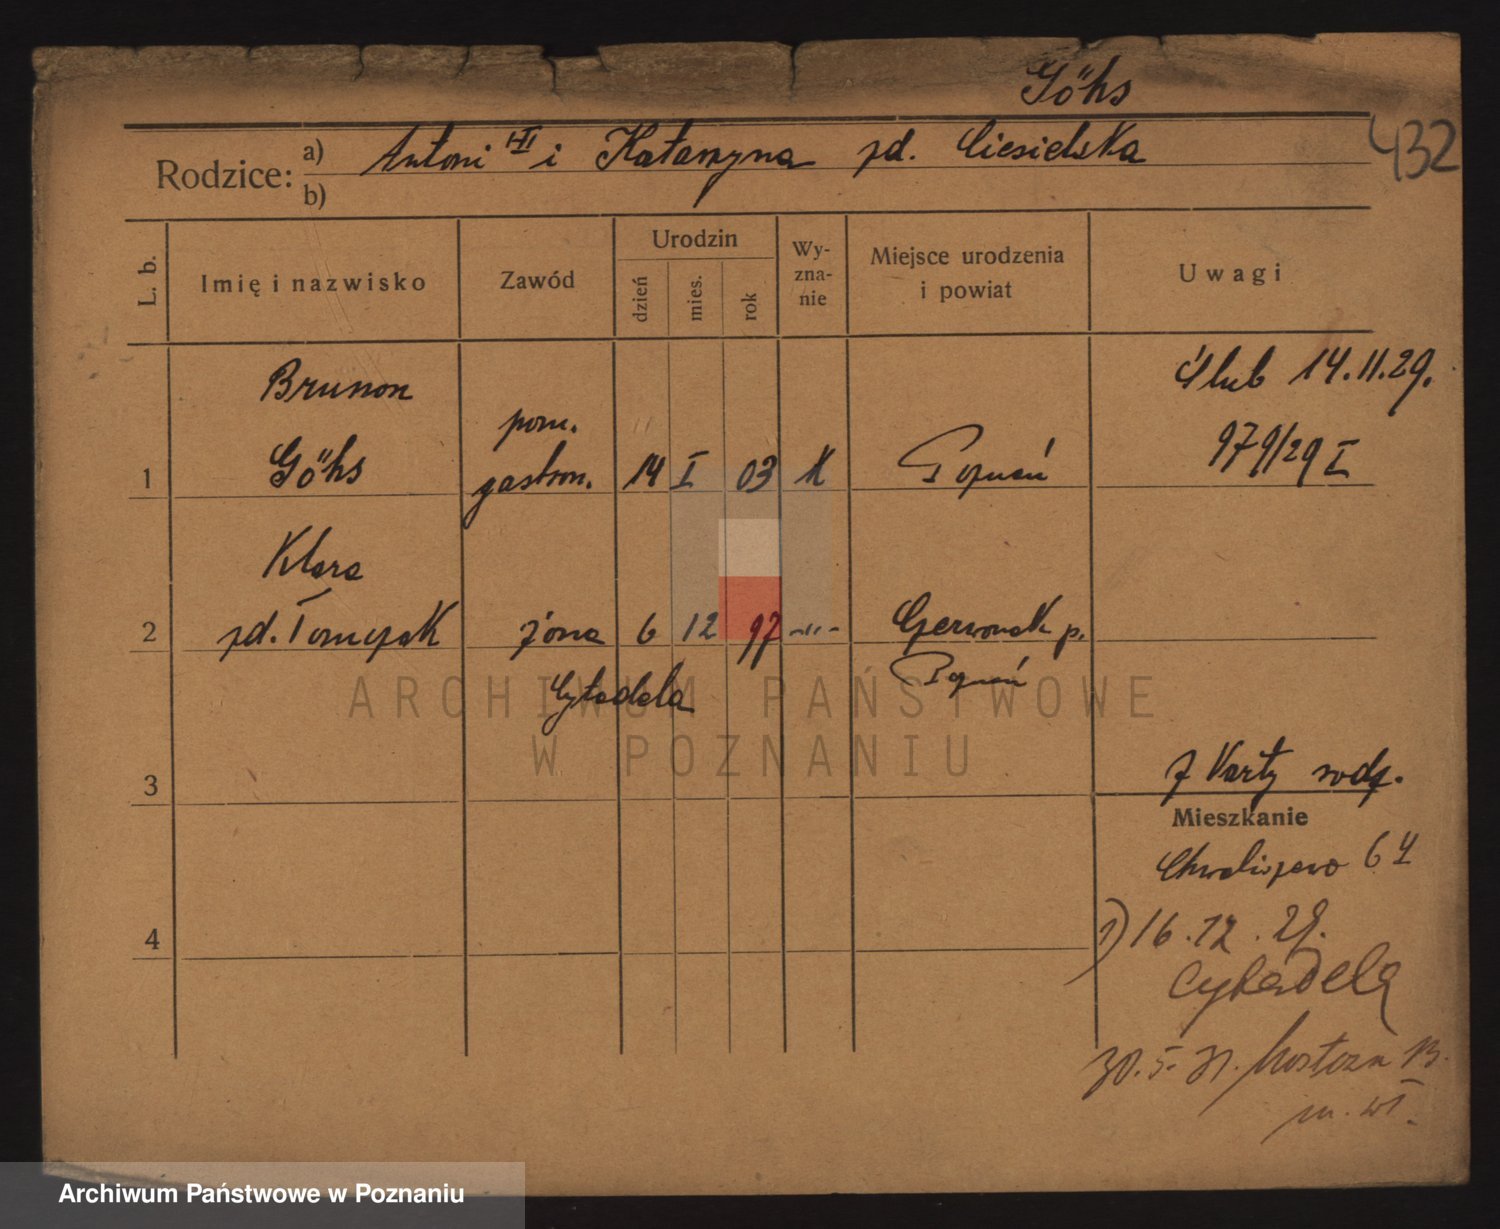 Göhs
432
Rodzice: a) Antoni III i Katarzyna zd. Ciesielska
b)
L. b.
Imię i nazwisko
Zawód
Urodzin
dzień
mies.
rok
Wy-
zna-
nie
Miejsce urodzenia
i powiat
Uwagi
Brunon
Göhs
pom.
gastron.
1
14 I 03 K Poznań
Ślub 14.11.29.
979/29 I
Klara
2 zd. Tomczak żona 6 12 97 -"- Czerwonak p.
Poznań
Cytadela
ARCHIWUM PAŃSTWOWE
W POZNANIU
3
z Karty rodz.
Mieszkanie
Chwaliszewo 64
4
1) 16.12.29.
Cytadela
30.5.31. Mostowa 13.
m. wł.
Archiwum Państwowe w Poznaniu